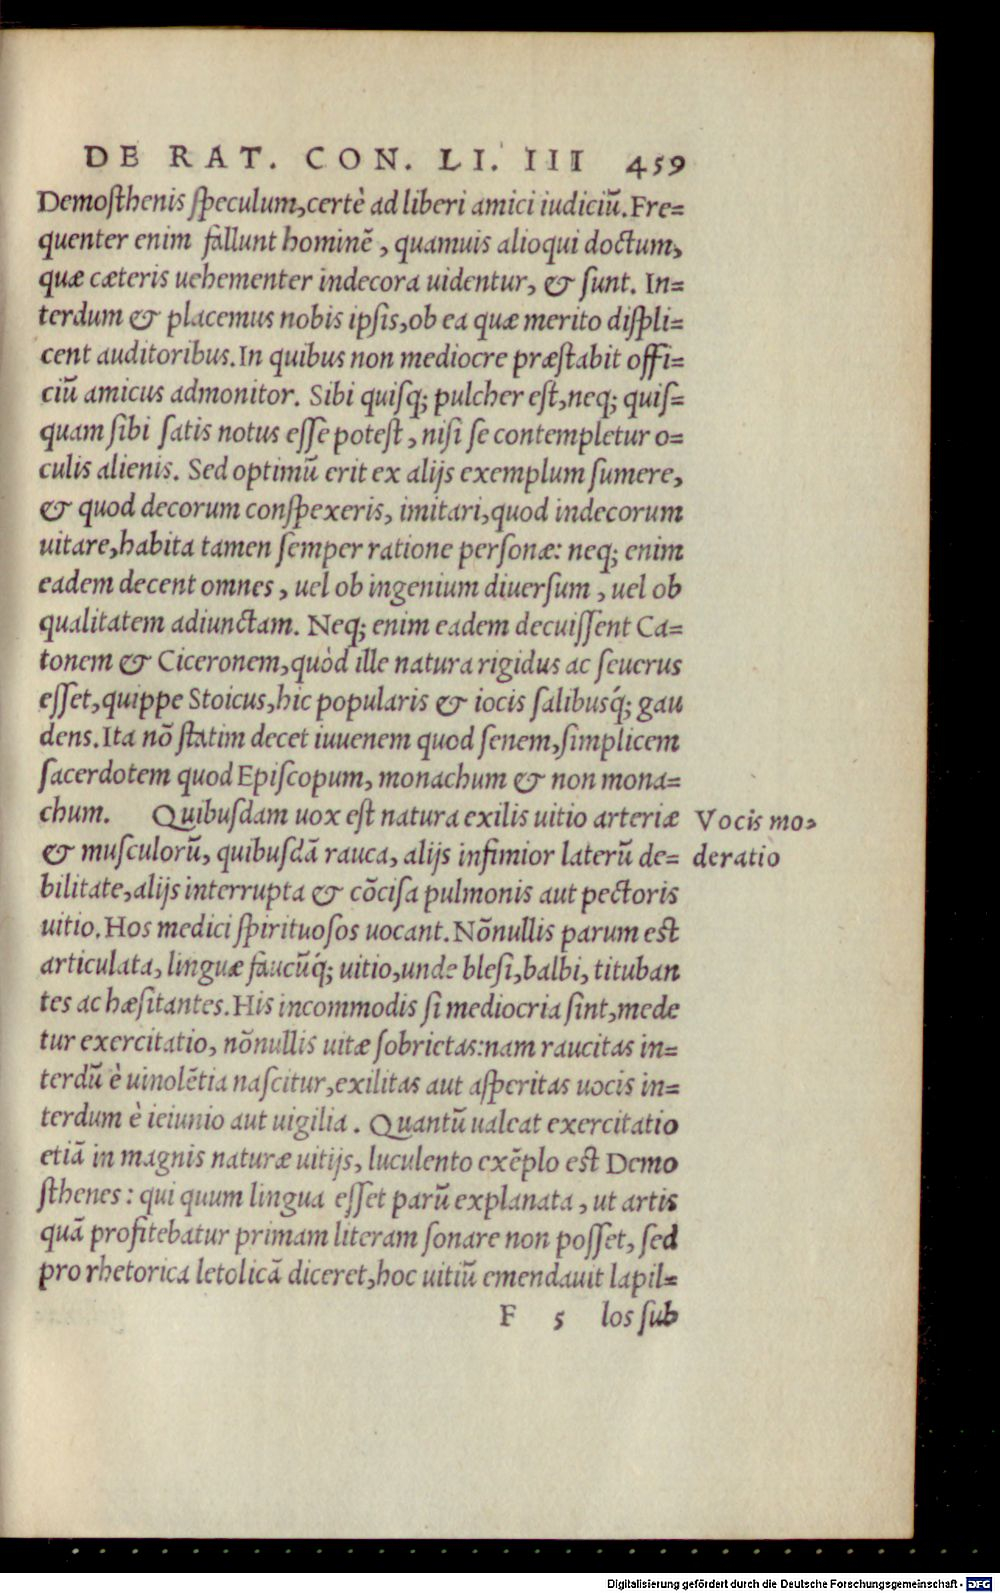 DE RAT. CON. LI. III 459
Demosthenis speculum, certè ad liberi amici iudiciũ. Fre=
quenter enim fallunt hominẽ, quamuis alioqui doctum,
quæ cæteris uehementer indecora uidentur, & sunt. In=
terdum & placemus nobis ipsis, ob ea quæ merito displi=
cent auditoribus. In quibus non mediocre præstabit offi=
ciũ amicus admonitor. Sibi quisq; pulcher est, neq; quis=
quam sibi satis notus esse potest, nisi se contempletur o=
culis alienis. Sed optimũ erit ex alijs exemplum sumere,
& quod decorum conspexeris, imitari, quod indecorum
uitare, habita tamen semper ratione personæ: neq; enim
eadem decent omnes, uel ob ingenium diuersum, uel ob
qualitatem adiunctam. Neq; enim eadem decuissent Ca=
tonem & Ciceronem, quòd ille natura rigidus ac seuerus
esset, quippe Stoicus, hic popularis & iocis salibusq́; gau
dens. Ita nõ statim decet iuuenem quod senem, simplicem
sacerdotem quod Episcopum, monachum & non mona=
chum. Quibusdam uox est natura exilis uitio arteriæ
& musculorũ, quibusdã rauca, alijs infimior laterũ de=
bilitate, alijs interrupta & cõcisa pulmonis aut pectoris
uitio. Hos medici spirituosos uocant. Nõnullis parum est
articulata, linguæ faucũq́; uitio, unde blesi, balbi, tituban
tes ac hæsitantes. His incommodis si mediocria sint, mede
tur exercitatio, nõnullis uitæ sobrietas: nam raucitas in=
terdũ è uinolẽtia nascitur, exilitas aut asperitas uocis in=
terdum è ieiunio aut uigilia. Quantũ ualeat exercitatio
etiã in magnis naturæ uitijs, luculento exẽplo est Demo
sthenes: qui quum lingua esset parũ explanata, ut artis
quã profitebatur primam literam sonare non posset, sed
pro rhetorica letolicã diceret, hoc uitiũ emendauit lapil=
F 5 los sub
Vocis mo=
deratio
Digitalisierung gefördert durch die Deutsche Forschungsgemeinschaft - DFG